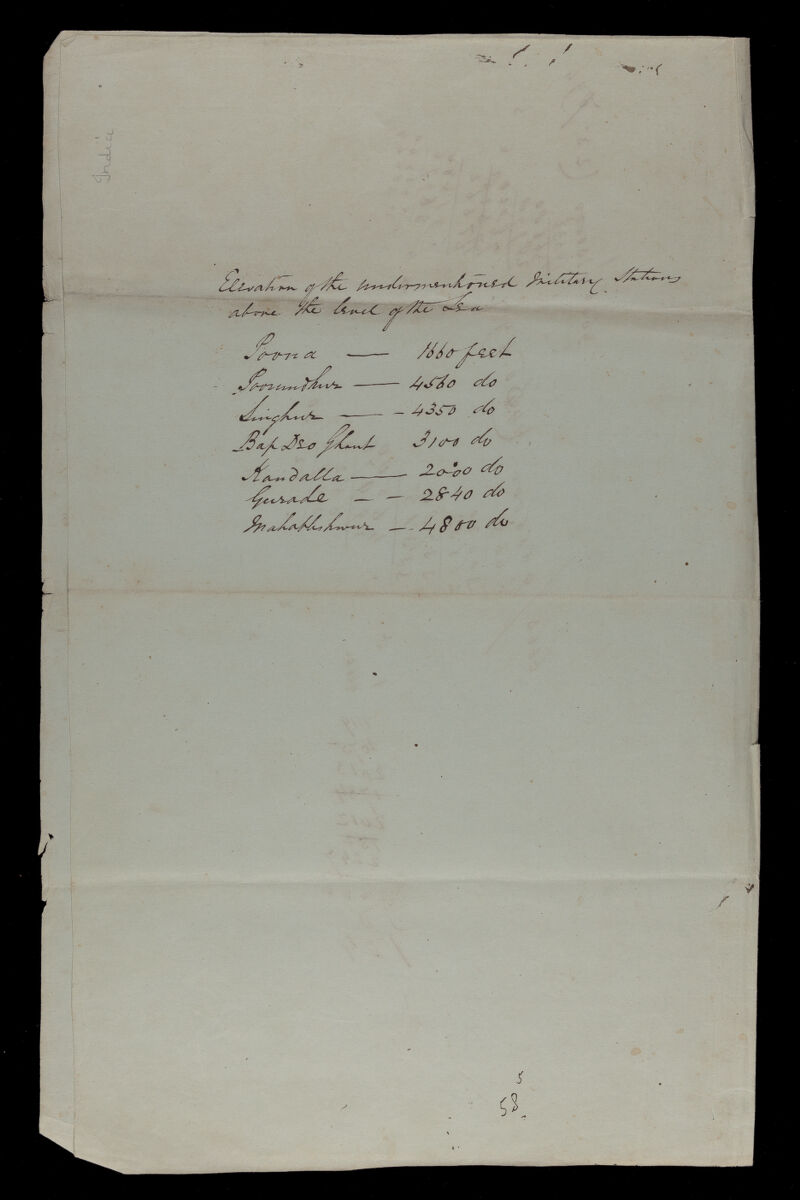 India
Elevation of the undermentioned Military Stations
above the level of the Sea
Poona — 1660 feet
Poorundhur — 4560 do
Singhur — - 4350 do
Bap Deo Ghaut 3100 do
Kandalla — 2000 do
Gurade - - 2840 do
Mahableshwur — 4800 do
5
58